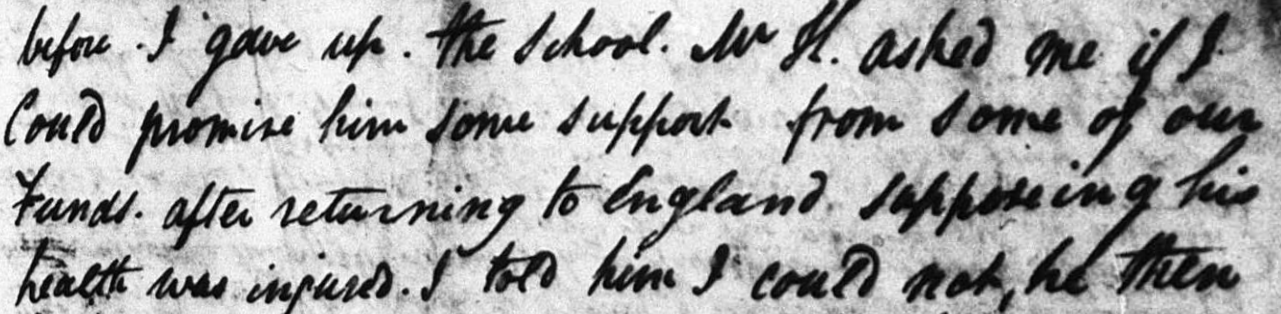 before . I gave up . the School . Mr H. asked me if I
Could promise him some support from some of our
Funds. after returning to England supposeing his
health was injured. I told him I could not, he then